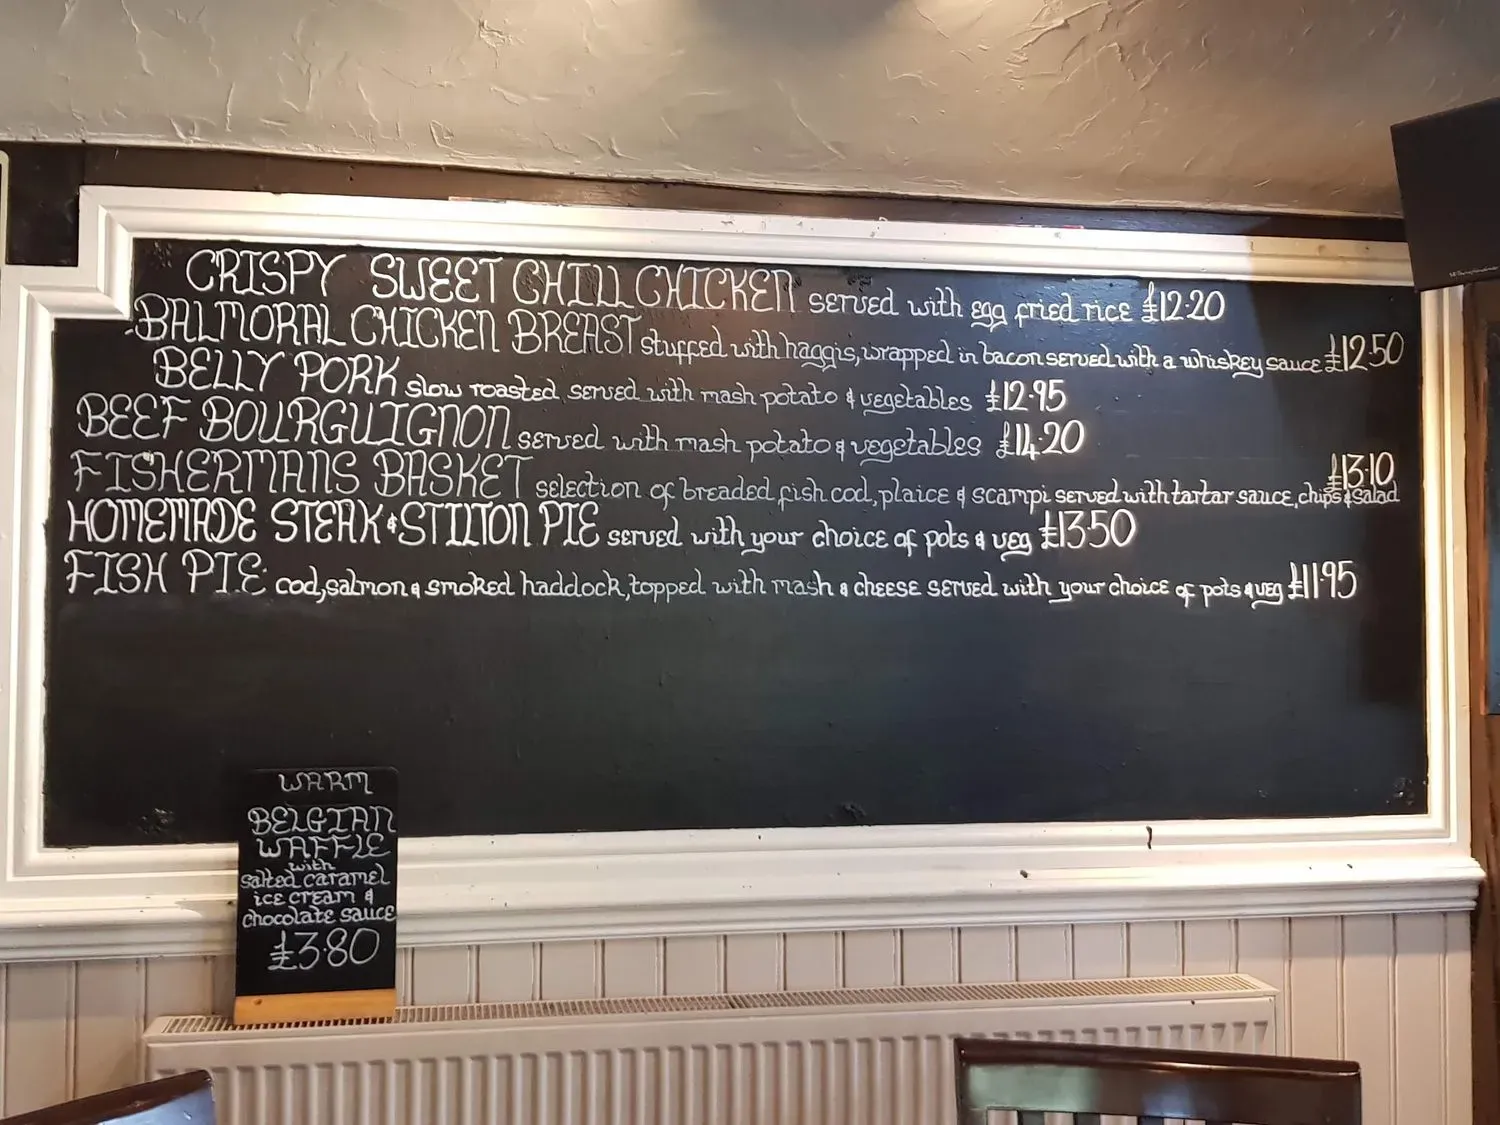 CRISPY SWEET CHILLI CHICKEN served with egg fried rice £12·20
BALMORAL CHICKEN BREAST stuffed with haggis, wrapped in bacon served with a whiskey sauce £12·50
BELLY PORK slow roasted served with mash potato & vegetables £12·95
BEEF BOURGUIGNON served with mash potato & vegetables £14·20
FISHERMANS BASKET selection of breaded fish cod, plaice & scampi served with tartar sauce, chips & salad £13·10
HOMEMADE STEAK & STILTON PIE served with your choice of pots & veg £13·50
FISH PIE cod, salmon & smoked haddock, topped with mash & cheese served with your choice of pots & veg £11·95
WARM
BELGIAN
WAFFLE
with
salted caramel
ice cream &
chocolate sauce
£3·80